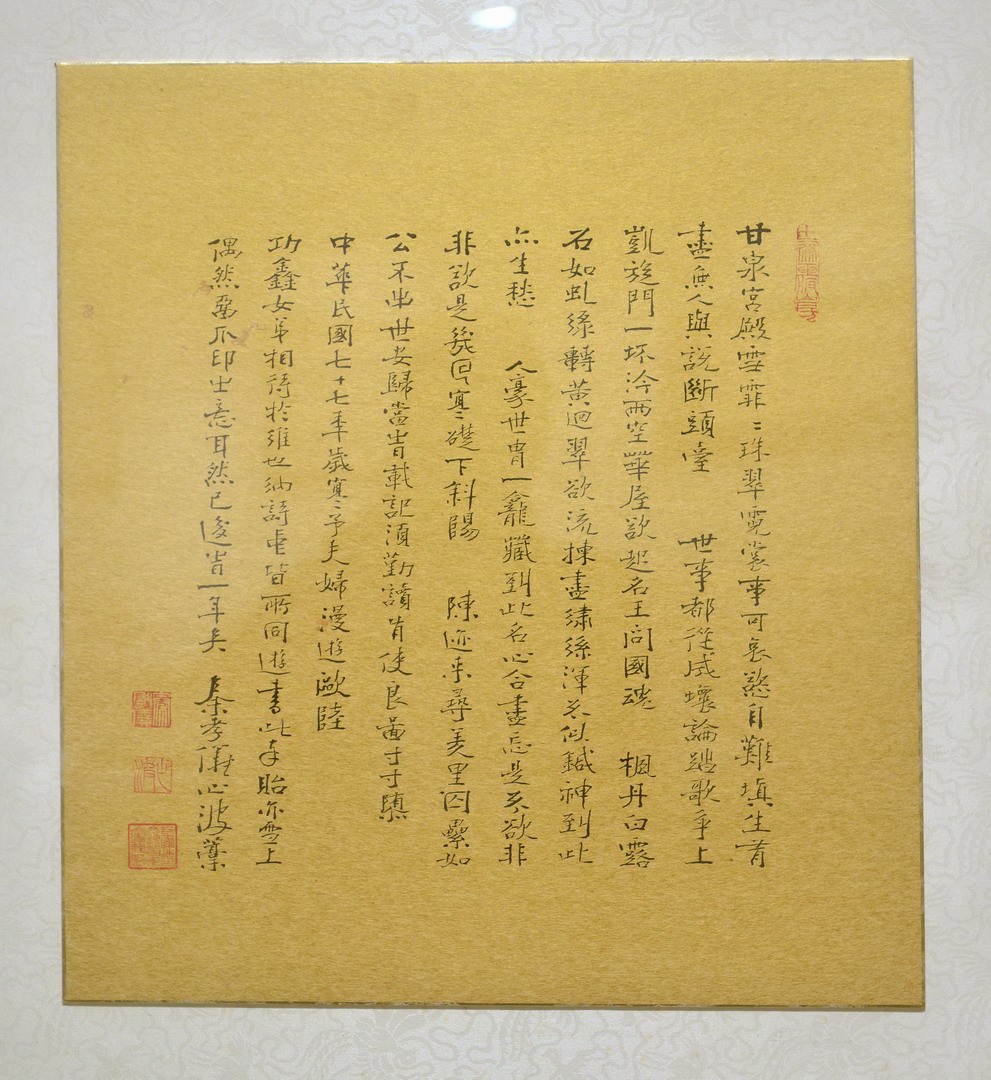 甘泉宮殿雪霏〻珠翠霓裳事可哀慾自難填生有
盡無人與說斷頭臺　世事都從成壞論踏歌爭上
凱旋門一坏冷雨空華屋欲起名王問國魂　楓丹白露
石如虬綠轉黃迴翠欲流揀盡繡絲渾不似鍼神到此
亦生愁　人豪世胄一龕藏到此名心合盡忘是不欲非
非欲是幾回寒礎下斜陽　陳迹來尋羑里囚纍如
公不出世安歸當時載記須勤讀肯使良圖寸寸隳
中華民國七十七年歲寒予夫婦漫遊歐陸
功鑫女弟相待於維也納詩中皆所同遊書此奉貽亦雪上
偶然留爪印之意耳然已後時一年矣　秦孝儀心波藁